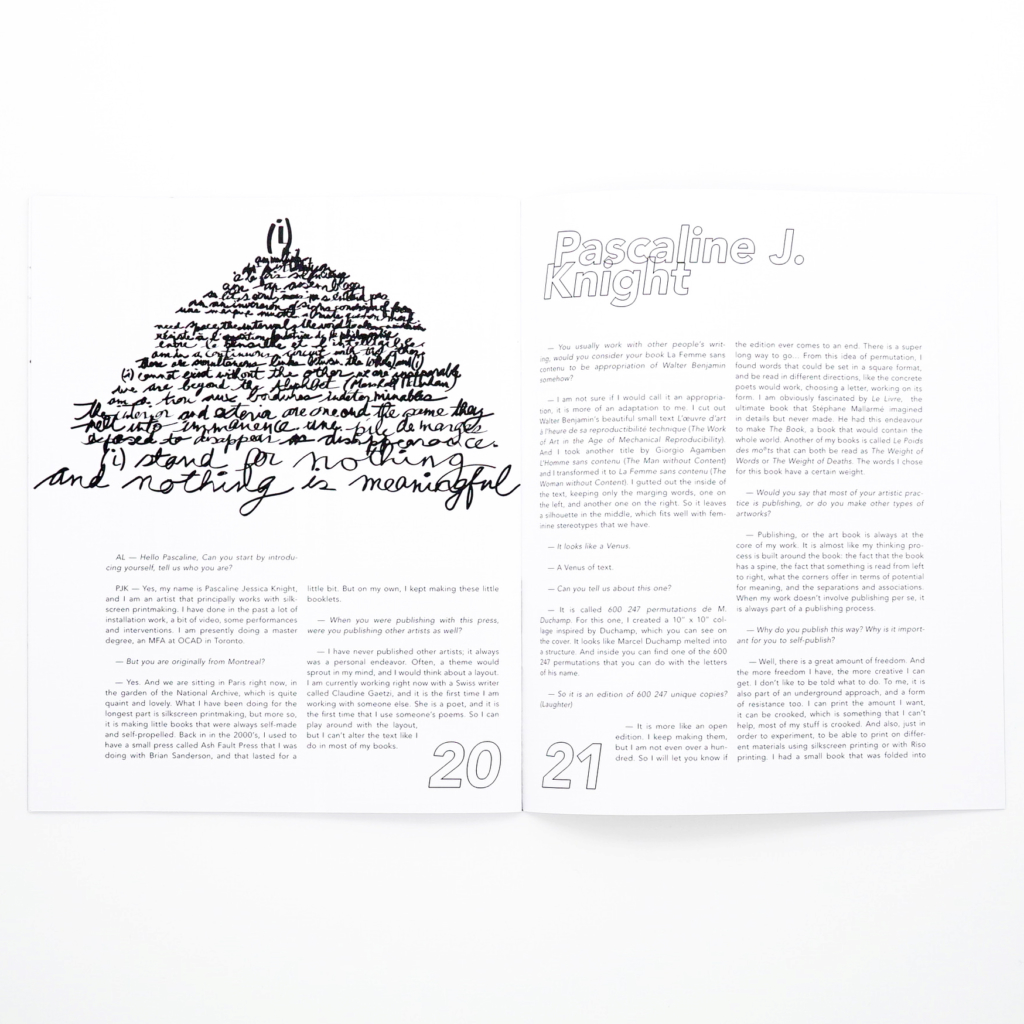 (i)
need space the interval, the world
(i) cannot exist without the other we are inseparable
we are beyond the Alphabet (Marshall McLuhan)
The interior and exterior are one and the same they
melt into immanence une pile de marges
exposed to disappear as disappearance.
(i) stand for nothing
and nothing is meaningful
AL — Hello Pascaline, Can you start by introdu-
cing yourself, tell us who you are?
PJK — Yes, my name is Pascaline Jessica Knight,
and I am an artist that principally works with silk-
screen printmaking. I have done in the past a lot of
installation work, a bit of video, some performances
and interventions. I am presently doing a master
degree, an MFA at OCAD in Toronto
— But you are originally from Montreal?
— Yes. And we are sitting in Paris right now, in
the garden of the National Archive, which is quite
quaint and lovely. What I have been doing for the
longest part is silkscreen printmaking, but more so,
it is making little books that were always self-made
and self-propelled. Back in in the 2000's, I used to
have a small press called Ash Fault Press that I was
doing with Brian Sanderson, and that lasted for a
little bit. But on my own, I kept making these little
booklets.
— When you were publishing with this press,
were you publishing other artists as well?
— I have never published other artists; it always
was a personal endeavor. Often, a theme would
sprout in my mind, and I would think about a layout.
I am currently working right now with a Swiss writer
called Claudine Gaetzi, and it is the first time I am
working with someone else. She is a poet, and it is
the first time that I use someone's poems. So I can
play around with the layout,
but I can't alter the text like I
do in most of my books.
20
Pascaline J.
Knight
— You usually work with other people's writ-
ing, would you consider your book La Femme sans
contenu to be appropriation of Walter Benjamin
somehow?
— I am not sure if I would call it an appropria-
tion, it is more of an adaptation to me. I cut out
Walter Benjamin's beautiful small text L'œuvre d'art
à l'heure de sa reproductibilité technique (The Work
of Art in the Age of Mechanical Reproducibility).
And I took another title by Giorgio Agamben
L'Homme sans contenu (The Man without Content)
and I transformed it to La Femme sans contenu (The
Woman without Content). I gutted out the inside of
the text, keeping only the marging words, one on
the left, and another one on the right. So it leaves
a silhouette in the middle, which fits well with fem-
inine stereotypes that we have.
— It looks like a Venus.
— A Venus of text.
— Can you tell us about this one?
— It is called 600 247 permutations de M.
Duchamp. For this one, I created a 10" x 10" col-
lage inspired by Duchamp, which you can see on
the cover. It looks like Marcel Duchamp melted into
a structure. And inside you can find one of the 600
247 permutations that you can do with the letters
of his name.
— So it is an edition of 600 247 unique copies?
(Laughter)
— It is more like an open
edition. I keep making them,
but I am not even over a hun-
dred. So I will let you know if
21
the edition ever comes to an end. There is a super
long way to go... From this idea of permutation, I
found words that could be set in a square format,
and be read in different directions, like the concrete
poets would work, choosing a letter, working on its
form. I am obviously fascinated by Le Livre, the
ultimate book that Stéphane Mallarmé imagined
in details but never made. He had this endeavour
to make The Book, a book that would contain the
whole world. Another of my books is called Le Poids
des mots that can both be read as The Weight of
Words or The Weight of Deaths. The words I chose
for this book have a certain weight.
— Would you say that most of your artistic prac-
tice is publishing, or do you make other types of
artworks?
— Publishing, or the art book is always at the
core of my work. It is almost like my thinking pro-
cess is built around the book: the fact that the book
has a spine, the fact that something is read from left
to right, what the corners offer in terms of potential
for meaning, and the separations and associations.
When my work doesn't involve publishing per se, it
is always part of a publishing process.
— Why do you publish this way? Why is it import-
ant for you to self-publish?
— Well, there is a great amount of freedom. And
the more freedom I have, the more creative I can
get. I don't like to be told what to do. To me, it is
also part of an underground approach, and a form
of resistance too. I can print the amount I want,
it can be crooked, which is something that I can't
help, most of my stuff is crooked. And also, just in
order to experiment, to be able to print on differ-
ent materials using silkscreen printing or with Riso
printing. I had a small book that was folded into